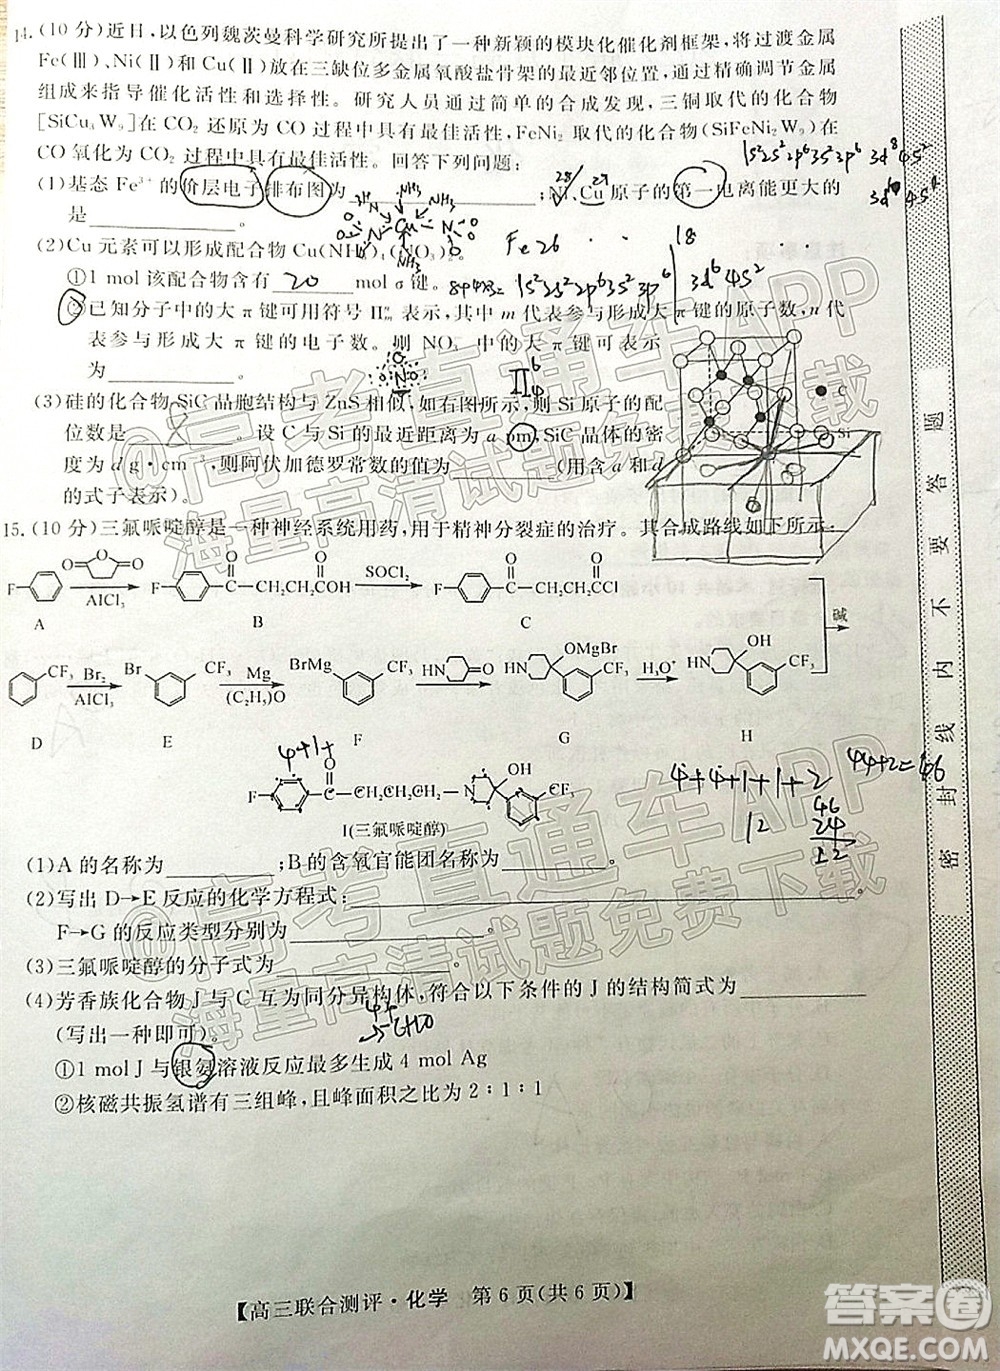 14.(10 分)近日,以色列魏茨曼科学研究所提出了一种新颖的模块化催化剂框架,将过渡金属
Fe(Ⅲ)、Ni(Ⅱ)和 Cu(Ⅱ)放在三缺位多金属氧酸盐骨架的最近邻位置,通过精确调节金属
组成来指导催化活性和选择性。研究人员通过简单的合成发现,三铜取代的化合物
[SiCu₃W₉]在 CO₂ 还原为 CO 过程中具有最佳活性,FeNi₂ 取代的化合物(SiFeNi₂W₉)在
CO 氧化为 CO₂ 过程中具有最佳活性。回答下列问题:
1s²2s²2p⁶3s²3p⁶ 3d⁸4s²
(1)基态 Fe³⁺ 的价层电子排布图为 ;Ni、Cu 原子的第一电离能更大的
28 29
是 。
(2)Cu 元素可以形成配合物 Cu(NH₃)₄(NO₃)₂。
Fe26 18
①1 mol 该配合物含有 20 mol σ 键。
8+4×3= 1s²2s²2p⁶3s²3p⁶ 3d⁶4s²
②已知分子中的大 π 键可用符号 Πₘⁿ 表示,其中 m 代表参与形成大 π 键的原子数,n 代
表参与形成大 π 键的电子数。则 NO₃⁻ 中的大 π 键应表示
为 。 Π₄⁶
(3)硅的化合物 SiC 晶胞结构与 ZnS 相似,如右图所示,则 Si 原子的配
位数是 8 。设 C 与 Si 的最近距离为 a pm,SiC 晶体的密
度为 d g·cm⁻³,则阿伏加德罗常数的值为 (用含 a 和 d
的式子表示)。
C
Si
15.(10 分)三氟哌啶醇是一种神经系统用药,用于精神分裂症的治疗。其合成路线如下所示:
F O O O AlCl₃ F O CCH₂CH₂COH O SOCl₂ F O CCH₂CH₂CCl O 碱
A B C
CF₃ Br₂ AlCl₃ Br CF₃ Mg (C₂H₅)₂O BrMg CF₃ HN O HN OMgBr CF₃ H₃O⁺ HN OH CF₃
D E F G H
4+1+
F O CCH₂CH₂CH₂—N OH CF₃
I(三氟哌啶醇)
4+4+1+1+2
12
44+2=46
46
24
22
(1)A 的名称为 ;B 的含氧官能团名称为 。
(2)写出 D→E 反应的化学方程式: 。
F→G 的反应类型分别为 。
(3)三氟哌啶醇的分子式为 。
(4)芳香族化合物 J 与 C 互为同分异构体,符合以下条件的 J 的结构简式为
(写出一种即可)。
CHO
①1 mol J 与银氨溶液反应最多生成 4 mol Ag
②核磁共振氢谱有三组峰,且峰面积之比为 2∶1∶1
【高三联合测评·化学 第 6 页(共 6 页)】
密封线内不要答题
@高考直通车APP
海量高清试题免费下载
@高考直通车APP
海量高清试题免费下载
答案圈
MXQE.COM